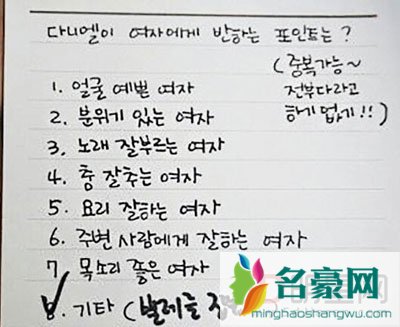 다니엘이 여자에게 반하는 포인트는?
(중복가능~
전부다라고
하기 없기!!)
1. 얼굴 예쁜 여자
2. 분위기 있는 여자
3. 노래 잘부르는 여자
4. 춤 잘추는 여자
5. 요리 잘하는 여자
6. 주변 사람에게 잘하는 여자
7. 목소리 좋은 여자
8. 기타 (발레를
名豪网
minghaoshangwu.com